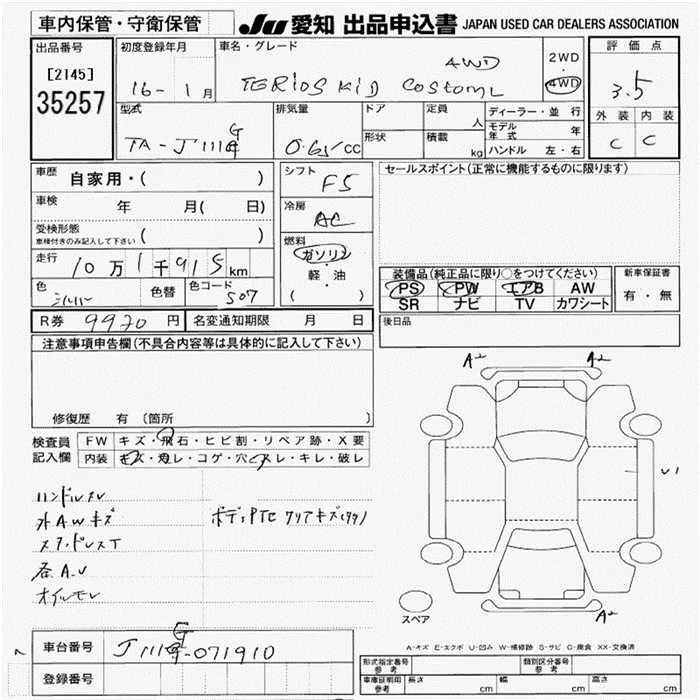 車内保管・守衛保管
JU 愛知 出品申込書 JAPAN USED CAR DEALERS ASSOCIATION
出品番号
[2145]
35257
初度登録年月
16-1月
車名・グレード
4WD
TERIOS KID CUSTOM L
2WD
・
4WD
評価点
3.5
外装 内装
C C
型式
TA-J111G
排気量
0.65cc
ドア
形状
定員
人
積載
kg
ディーラー・並行
モデル年式 年
ハンドル 左・右
車歴 自家用・( )
車検 年 月( 日)
受検形態
車検付きのみ記入して下さい ( )
走行 10万1千915km
色 シルバー 色替 色コード S07
シフト F5
冷房 AC
燃料
ガソリン
・
軽・油
( )
セールスポイント(正常に機能するものに限ります)
装備品(純正品に限り○をつけてください)
PS PW エアB AW
SR ナビ TV カワシート
新車保証書
有・無
R券 9970円 名変通知期限 月 日
後日品
注意事項申告欄(不具合内容等は具体的に記入して下さい)
修復歴 有 (箇所 )
検査員記入欄
FW キズ・飛石・ヒビ割・リペア跡・X要
内装 キズ・汚レ・コゲ・穴・スレ・キレ・破レ
ハンドルスレ
外AWキズ
オイルモレ
A2 A2
U1
A2
スペア
A-キズ E-エクボ U-凹み W-補修跡 S-サビ C-腐食 XX-交換済
車台番号 J111G-071910
登録番号
形式指定番号 参考
類別区分番号 参考
車庫証明用 参考 長さ cm 幅 cm 高さ cm